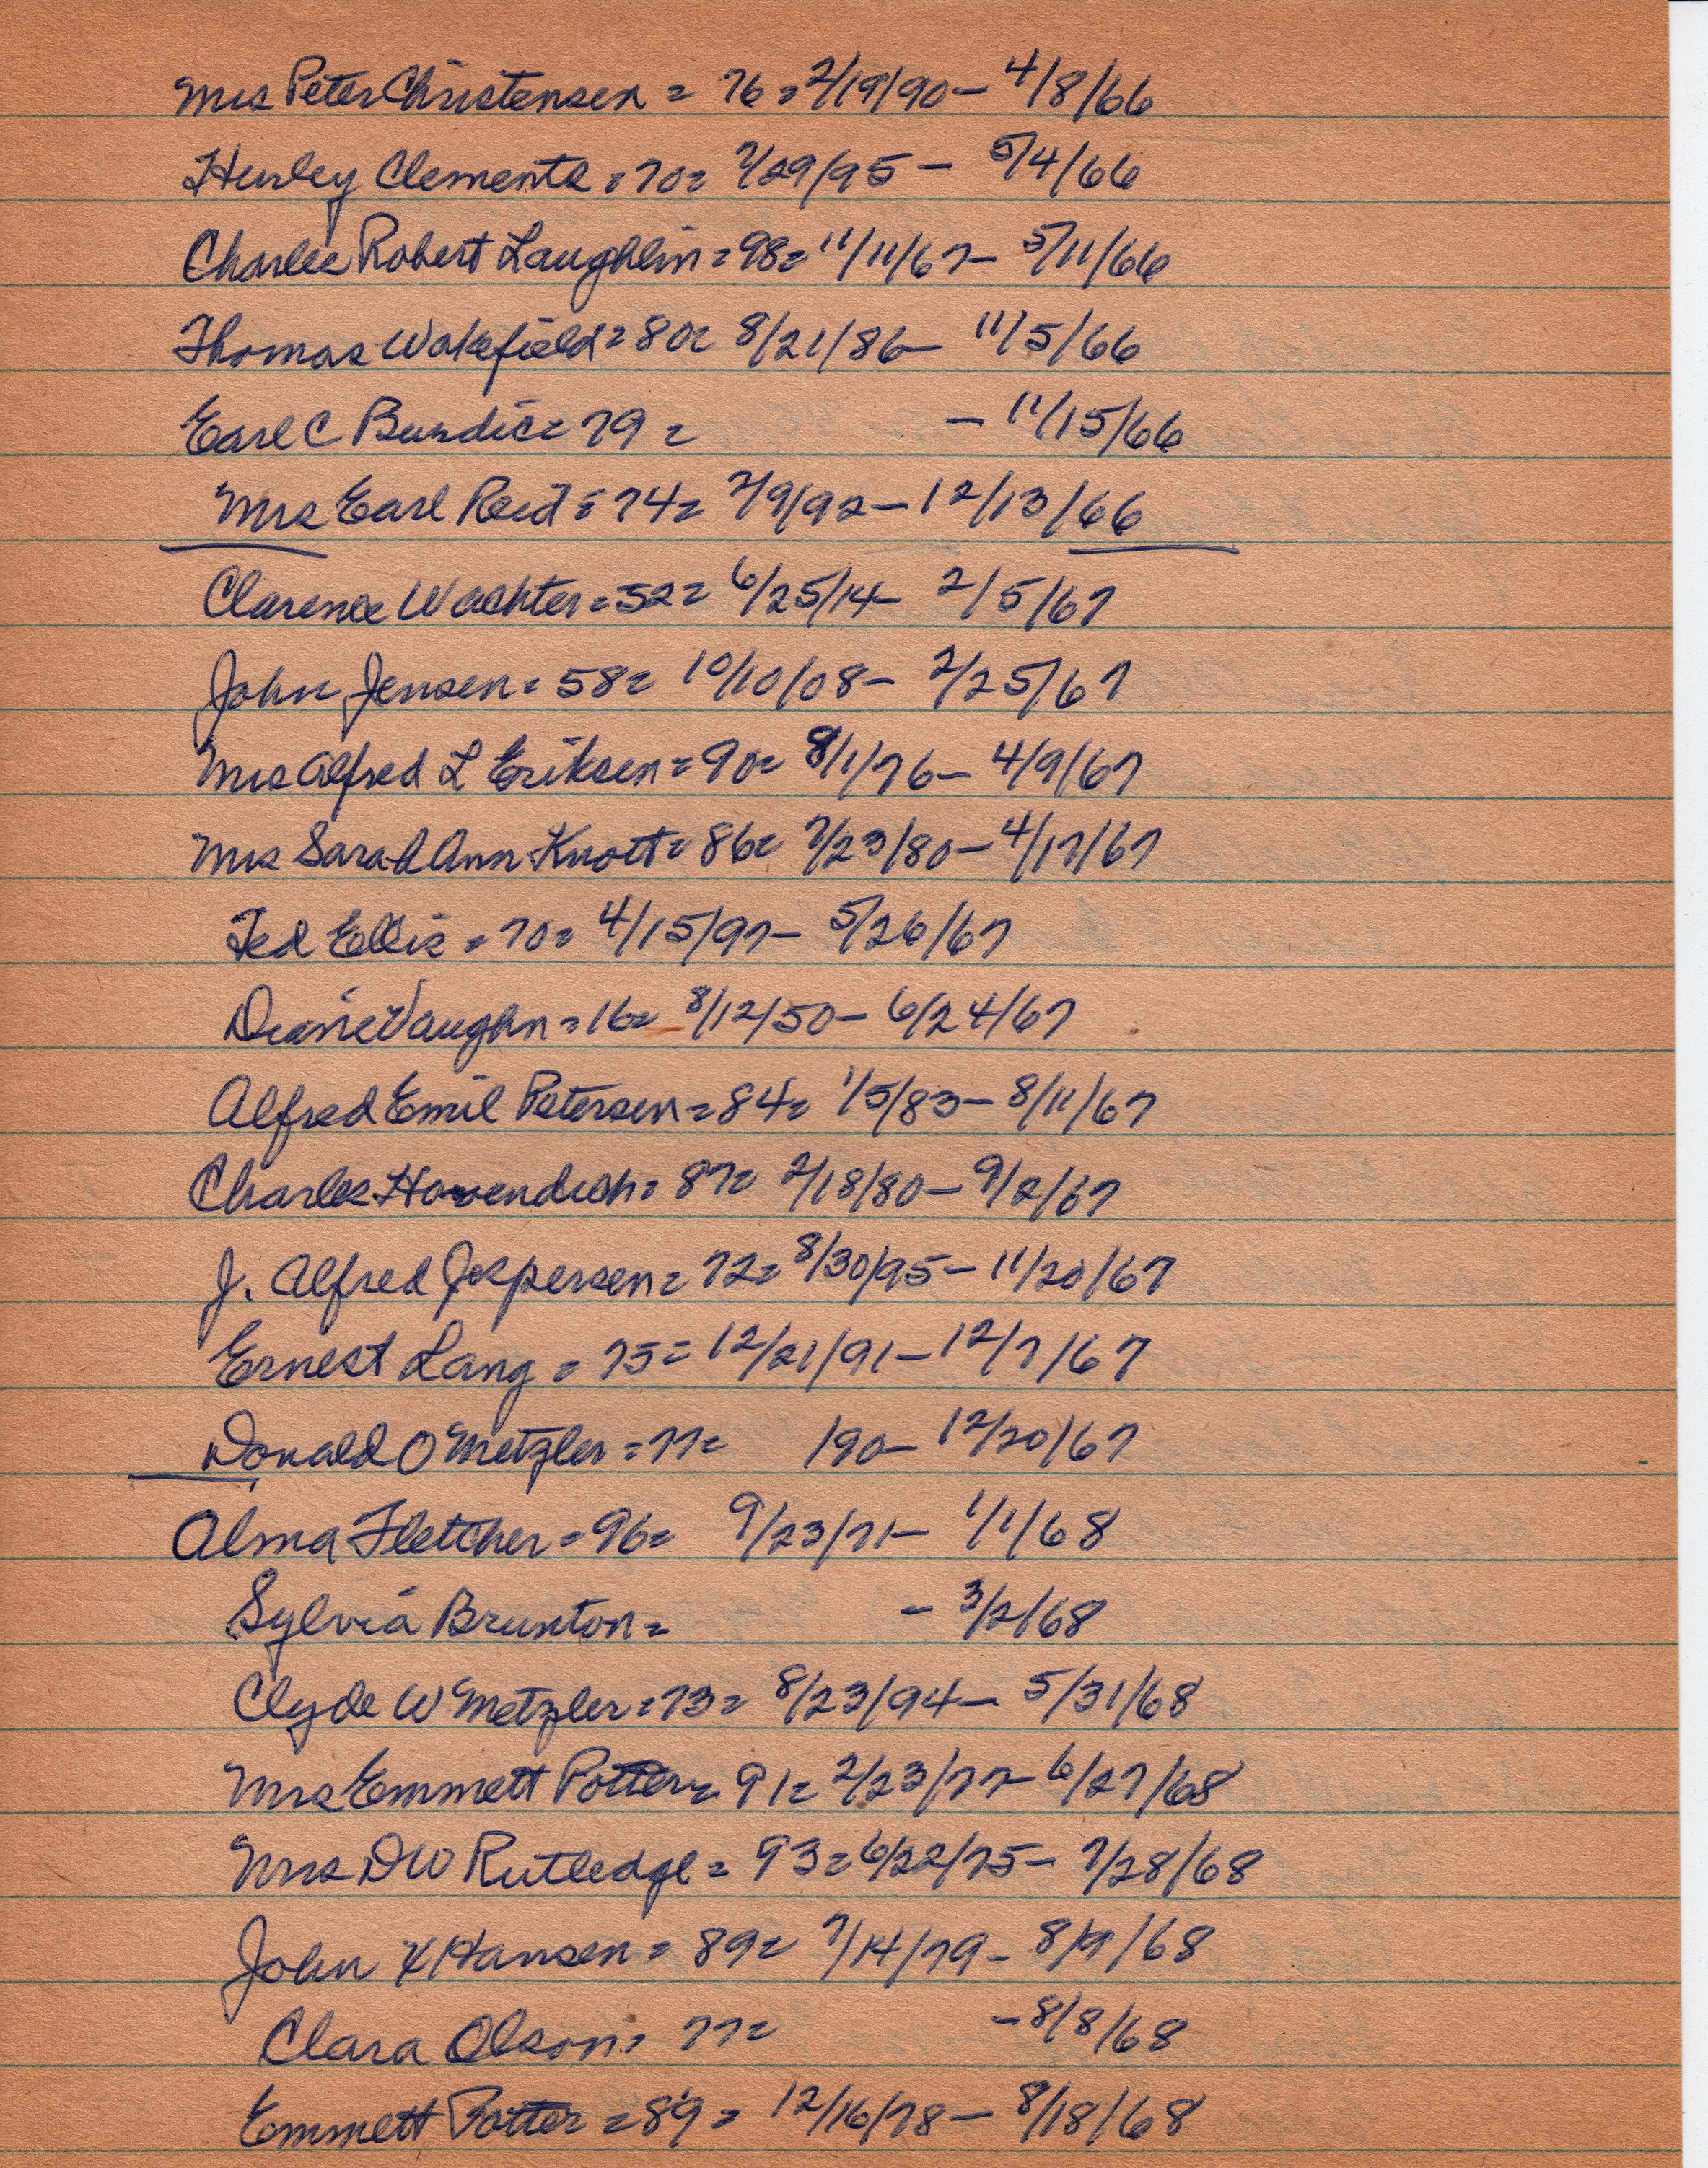 Mrs Peter Christensen = 76 = 2/19/90 - 4/8/66
Hurley Clements = 70 = 7/29/95 - 5/4/66
Charles Robert Laughlin = 98 = 11/11/67 - 5/11/66
Thomas Wakefield = 80 = 8/21/86 - 11/5/66
Earl C Bundic = 79 = - 11/15/66
Mrs Earl Reid = 74 = 2/9/92 - 12/13/66
Clarence Wachter = 52 = 6/25/14 - 2/5/67
John Jensen = 58 = 10/10/08 - 2/25/67
Mrs Alfred L Eriksen = 90 = 8/1/76 - 4/9/67
Mrs Sarah Ann Knott = 86 = 7/23/80 - 4/17/67
Ted Ellis = 70 = 4/15/97 - 5/26/67
Diane Vaughn = 16 = 8/12/50 - 6/24/67
Alfred Emil Petersen = 84 = 1/5/83 - 8/11/67
Charles = 87 = 2/18/80 - 9/2/67
J. Alfred Jespersen = 72 = 8/30/95 - 11/20/67
Ernest Lang = 75 = 12/21/91 - 12/7/67
Donald O Metzler = 77 = /90 - 12/20/67
Alma Fletcher = 96 = 9/23/71 - 1/1/68
Sylvia Brunton = - 3/2/68
Clyde W Metzler = 73 = 8/23/94 - 5/31/68
Mrs Emmett Potter = 91 = 2/23/77 - 6/27/68
Mrs DW Rutledge = 93 = 6/22/75 - 7/28/68
John Hansen = 89 = 7/14/79 - 8/9/68
Clara Olson = 77 = - 8/8/68
Emmett Potter = 89 = 12/16/78 - 8/18/68